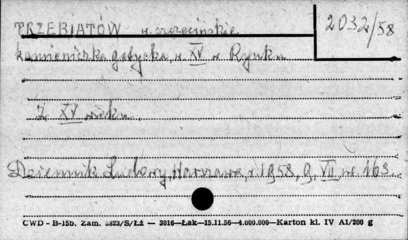 TRZEBIATÓW w. szczecińskie 2032/58
kamieniczka gotycka, w. XV w Rynku
Z XV wieku.
Dziennik Ludowy, Warszawa, r. 1958, 9. VII, nr. 163
CWD - B-15b. Zam. /S/Łż — 3016—Łak—15.11.56—4.000.000—Karton kl. IV A1/200 g